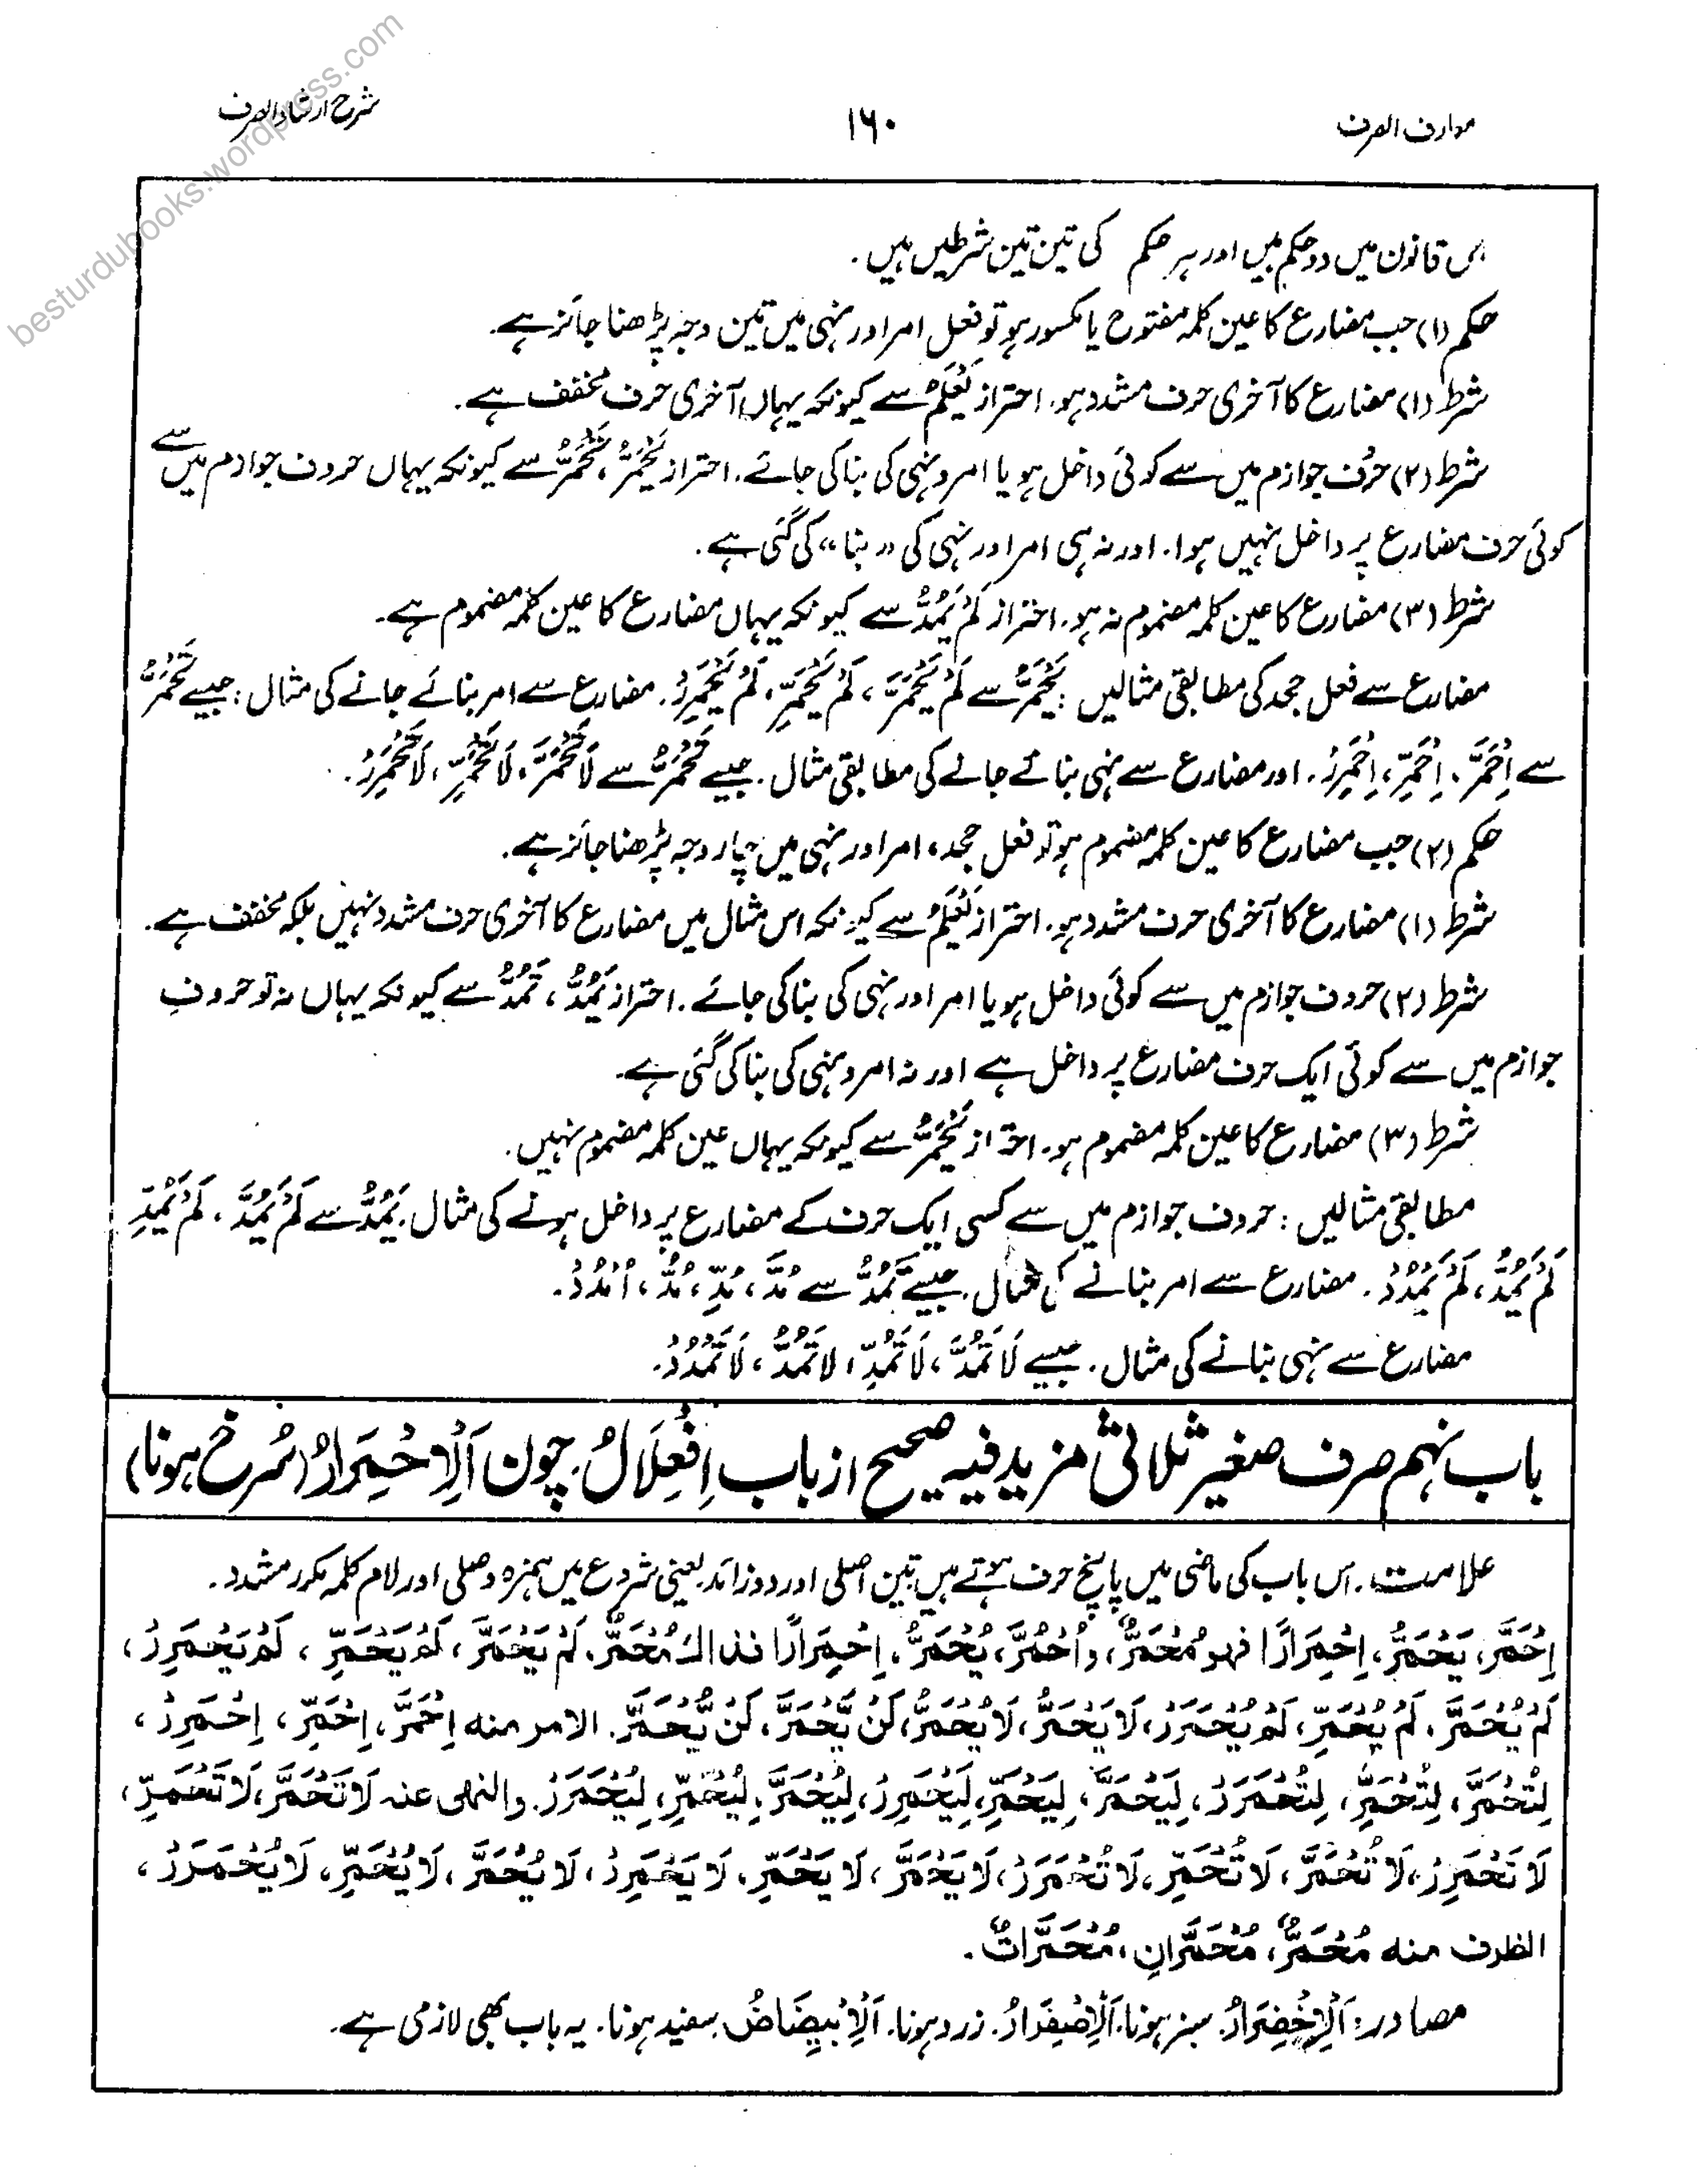 besturdubooks.wordpress.com
معارف الصرف
۱۶۰
شرح ارشاد الصرف
اس قانون میں دو حکم ہیں اور ہر حکم کی تین تین شرطیں ہیں۔
حکم (۱) جب مضارع کا عین کلمہ مفتوح یا مکسور ہو تو فعل امر اور نہی میں تین وجہ پڑھنا جائز ہے۔
شرط (۱) مضارع کا آخری حرف مشدد ہو۔ احتراز یَعْلَمُ سے کیونکہ یہاں آخری حرف مخفف ہے۔
شرط (۲) حروف جوازم میں سے کوئی داخل ہو یا امر و نہی کی بنا کی جائے۔ احتراز یَحْمَرُّ، تَحْمَرُّ سے کیونکہ یہاں حروف جوازم میں سے
کوئی حرف مضارع پر داخل نہیں ہوا۔ اور نہ ہی امر اور نہی کی "بنا" کی گئی ہے۔
شرط (۳) مضارع کا عین کلمہ مضموم نہ ہو۔ احتراز لَمْ یَمُدُّ سے کیونکہ یہاں مضارع کا عین کلمہ مضموم ہے۔
مضارع سے فعل جحد کی مطابقی مثالیں: یَحْمَرُّ سے لَمْ یَحْمَرَّ، لَمْ یَحْمَرِّ، لَمْ یَحْمَرِرْ۔ مضارع سے امر بنائے جانے کی مثال: جیسے تَحْمَرُّ
سے اِحْمَرَّ، اِحْمَرِّ، اِحْمَرِرْ۔ اور مضارع سے نہی بنائے جانے کی مطابقی مثال۔ جیسے تَحْمَرُّ سے لَا تَحْمَرَّ، لَا تَحْمَرِّ، لَا تَحْمَرِرْ۔
حکم (۲) جب مضارع کا عین کلمہ مضموم ہو تو فعل جحد، امر اور نہی میں چار وجہ پڑھنا جائز ہے۔
شرط (۱) مضارع کا آخری حرف مشدد ہو۔ احتراز یَعْلَمُ سے کیونکہ اس مثال میں مضارع کا آخری حرف مشدد نہیں بلکہ مخفف ہے۔
شرط (۲) حروف جوازم میں سے کوئی داخل ہو یا امر اور نہی کی بنا کی جائے۔ احتراز یَمُدُّ، تَمُدُّ سے کیونکہ یہاں نہ تو حروفِ
جوازم میں سے کوئی ایک حرف مضارع پر داخل ہے اور نہ امر و نہی کی بنا کی گئی ہے۔
شرط (۳) مضارع کا عین کلمہ مضموم ہو۔ احتراز یَحْمَرُّ سے کیونکہ یہاں عین کلمہ مضموم نہیں۔
مطابقی مثالیں: حروف جوازم میں سے کسی ایک حرف کے مضارع پر داخل ہونے کی مثال۔ یَمُدُّ سے لَمْ یَمُدَّ، لَمْ یَمُدِّ
لَمْ یَمُدُّ، لَمْ یَمْدُدْ۔ مضارع سے امر بنانے کی مثال۔ جیسے تَمُدُّ سے مُدَّ، مُدِّ، مُدُّ، اُمْدُدْ۔
مضارع سے نہی بنانے کی مثال۔ جیسے لَا تَمُدَّ، لَا تَمُدِّ، لَا تَمُدُّ، لَا تَمْدُدْ۔
باب نہم صرف صغیر ثلاثی مزید فیہ صحیح از باب اِفْعِلَالْ۔ چون اَلْاِحْمِرَارُ (سُرخ ہونا)
علامت۔ اس باب کی ماضی میں پانچ حرف ہوتے ہیں تین اصلی اور دو زائد یعنی شروع میں ہمزہ وصلی اور لام کلمہ مکرر مشدد۔
اِحْمَرَّ، یَحْمَرُّ، اِحْمِرَارًا فہو مُحْمَرٌّ، واُحْمُرَّ، یُحْمَرُّ، اِحْمِرَارًا فذالک مُحْمَرٌّ۔ لَمْ یَحْمَرَّ، لَمْ یَحْمَرِّ، لَمْ یَحْمَرِرْ،
لَمْ یُحْمَرَّ، لَمْ یُحْمَرِّ، لَمْ یُحْمَرَرْ، لَا یَحْمَرُّ، لَا یُحْمَرُّ، لَنْ یَّحْمَرَّ، لَنْ یُّحْمَرَّ۔ الامر منہ اِحْمَرَّ، اِحْمَرِّ، اِحْمَرِرْ،
لِتُحْمَرَّ، لِتُحْمَرِّ، لِتُحْمَرَرْ، لِیَحْمَرَّ، لِیَحْمَرِّ، لِیَحْمَرِرْ، لِیُحْمَرَّ، لِیُحْمَرِّ، لِیُحْمَرَرْ۔ والنہی عنہ لَا تَحْمَرَّ، لَا تَحْمَرِّ،
لَا تَحْمَرِرْ، لَا تُحْمَرَّ، لَا تُحْمَرِّ، لَا تُحْمَرَرْ، لَا یَحْمَرَّ، لَا یَحْمَرِّ، لَا یَحْمَرِرْ، لَا یُحْمَرَّ، لَا یُحْمَرِّ، لَا یُحْمَرَرْ،
الظرف منہ مُحْمَرٌّ، مُحْمَرَّانِ، مُحْمَرَّاتٌ۔
مصادر: اَلْاِخْضِرَارُ۔ سبز ہونا۔ اَلْاِصْفِرَارُ۔ زرد ہونا۔ اَلْاِبْیِضَاضُ سفید ہونا۔ یہ باب بھی لازمی ہے۔